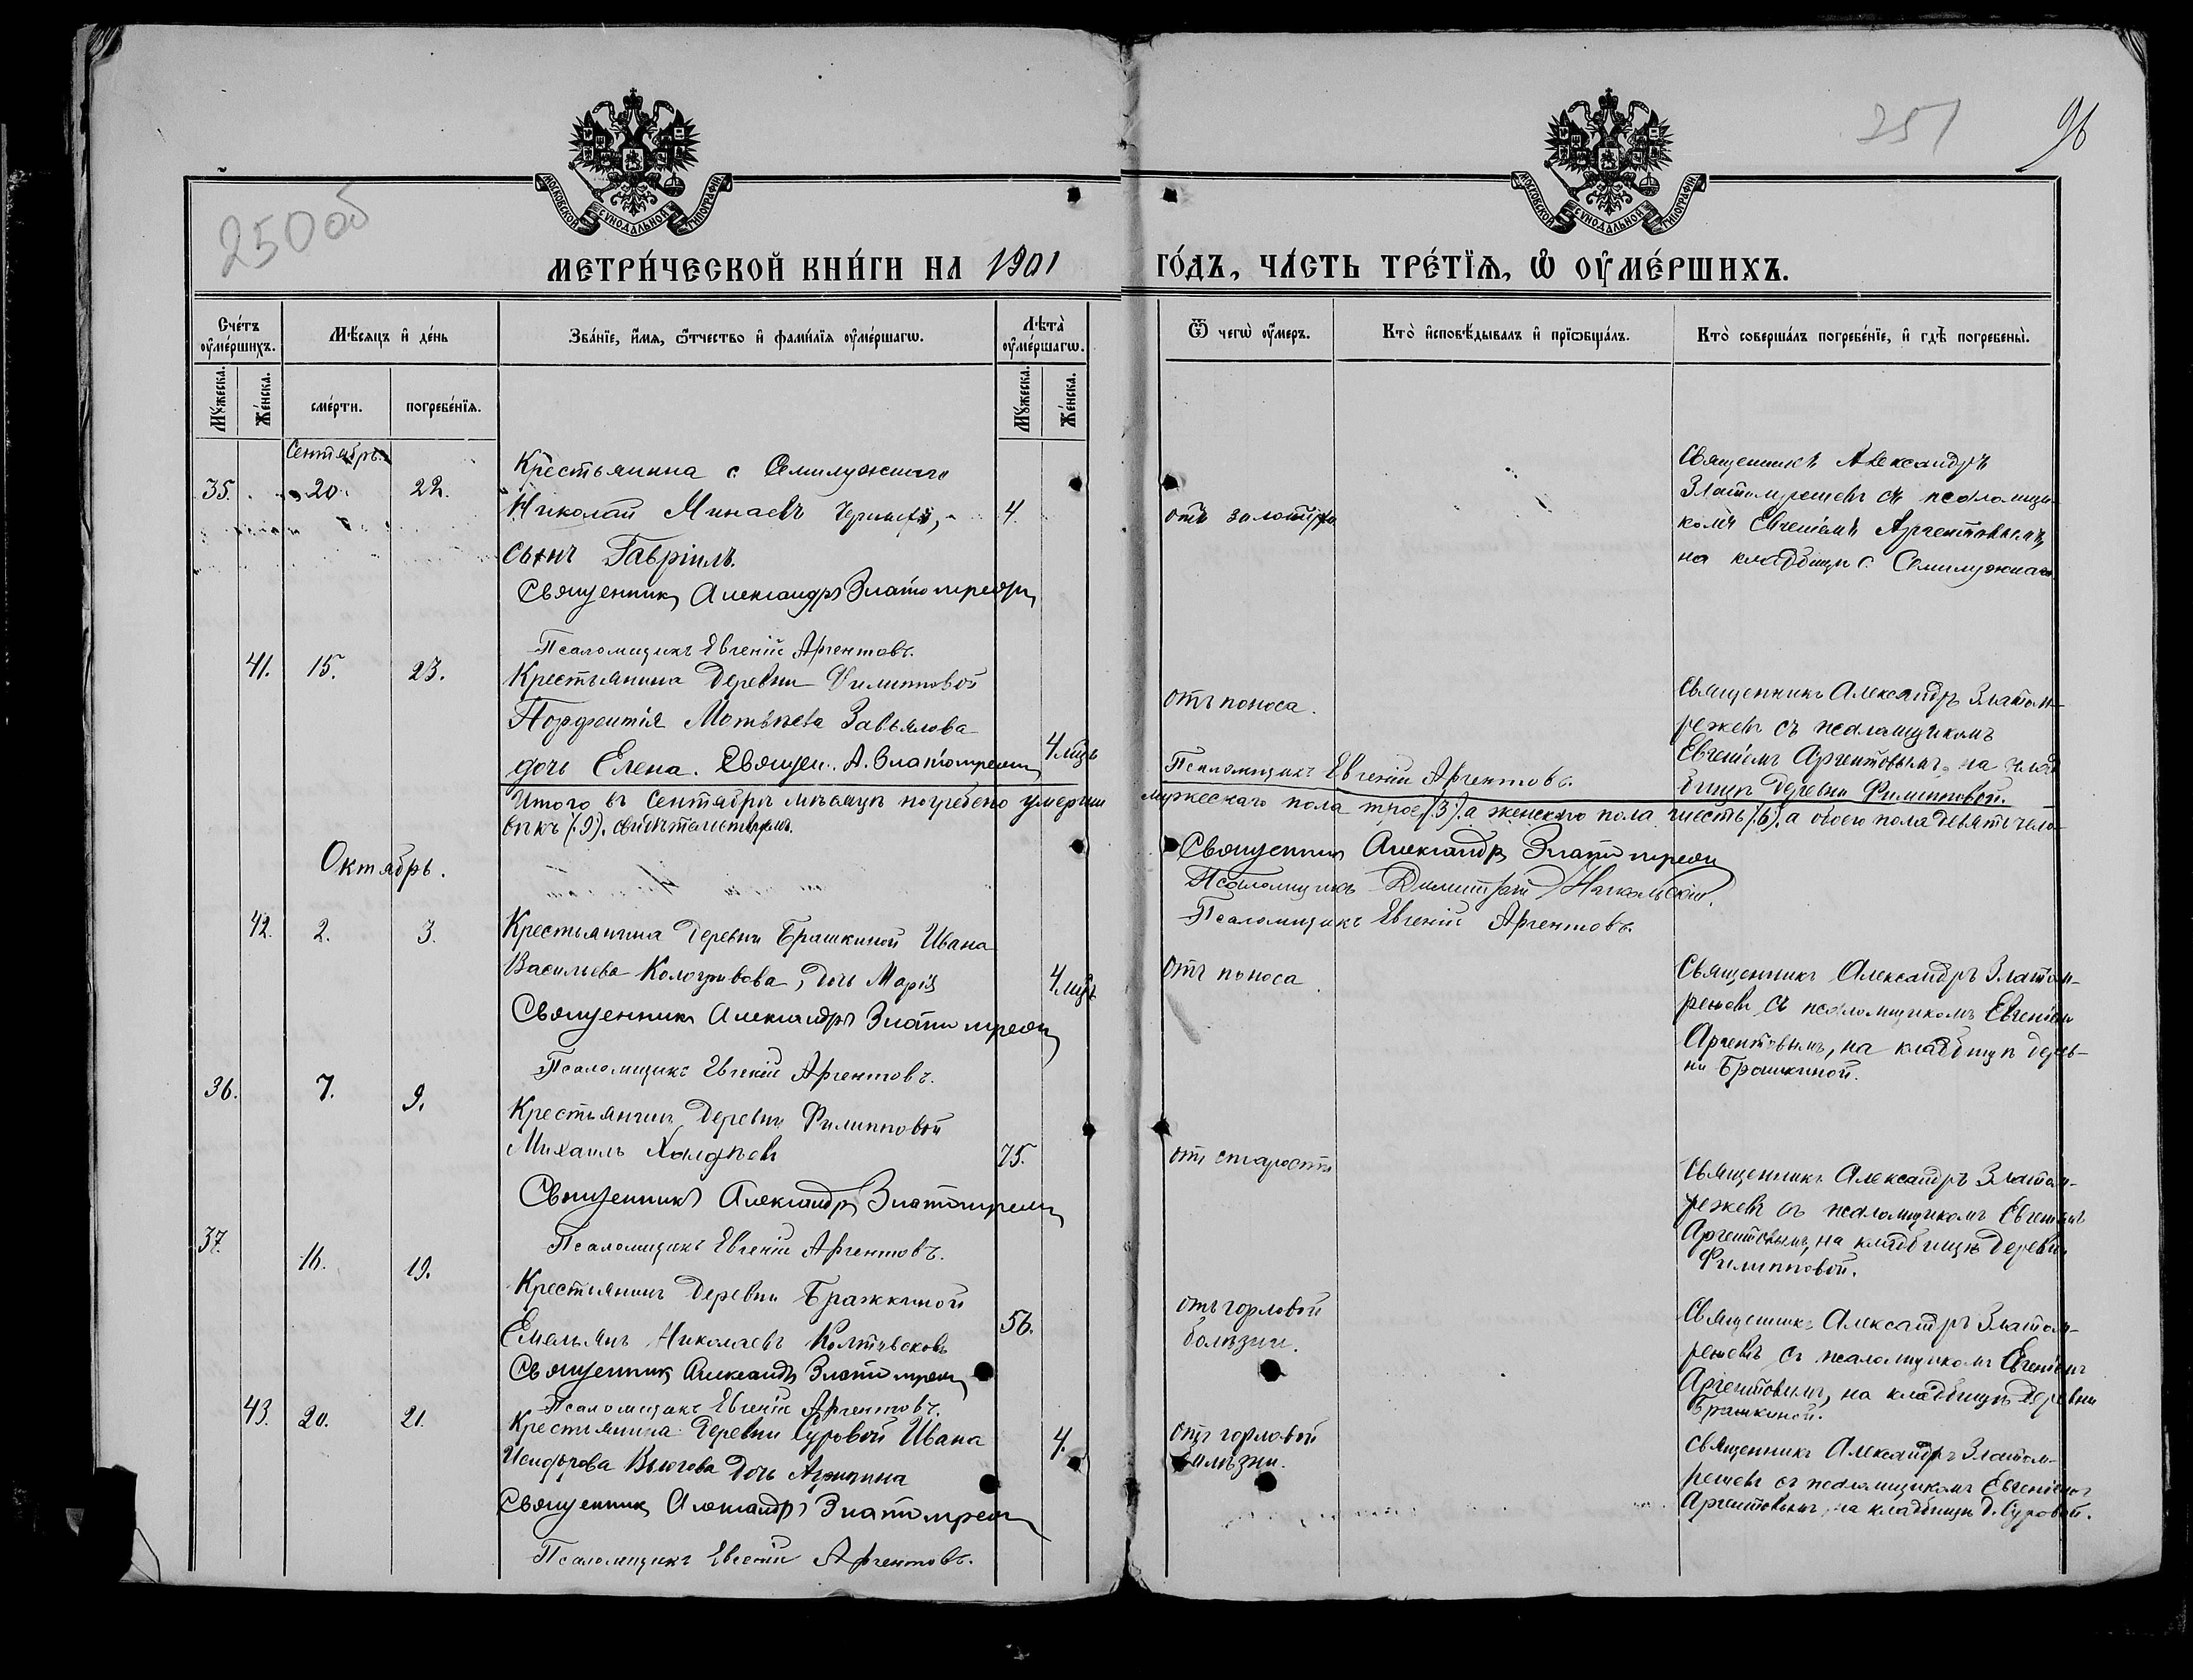 250 об
251
96
МОСКОВСКОЙ СѴНОДАЛЬНОЙ ТИПОГРАФІИ.
МОСКОВСКОЙ СѴНОДАЛЬНОЙ ТИПОГРАФІИ.
МЕТРИ́ЧЕСКОЙ КНИ́ГИ НА 1901 ГО́ДЪ, ЧА́СТЬ ТРЕ́ТЇѦ, Ѡ҆ ОУ҆МЕ́РШИХЪ.
Сче́тъ оу҆ме́ршихъ.
Мѣ́сяцъ и҆ де́нь
Зва́нїе, и҆́мѧ, ѻ҆́тчество и҆ фами́лїѧ оу҆ме́ршагѡ.
Лѣ́та оу҆ме́ршагѡ.
Ѿ чегѡ̀ оу҆́меръ.
Кто̀ и҆сповѣ́дывалъ и҆ прїѡбща́лъ.
Кто̀ соверша́лъ погребе́нїе, и҆ гдѣ̀ погребены̀.
Мꙋ́жеска.
Же́нска.
сме́рти.
погребе́нїѧ.
Мꙋ́жеска.
Же́нска.
Сентябрь.
35. 20. 22.
Крестьянина с. Семилужнаго
Николай Минаевъ
сынъ Гавріилъ.
4.
Священникъ Александръ Златомрежевъ
Псаломщикъ Евгеній Аргентовъ.
Священникъ Александръ
Златомрежевъ съ псаломщи-
комъ Евгеніемъ Аргентовымъ,
на кладбищѣ с. Семилужнаго.
41. 15. 23.
Крестьянина деревни Филипповой
Матвѣева Завьялова
дочь Елена. Священ. А. Златомрежевъ
4 мѣц
отъ поноса.
Псаломщикъ Евгеній Аргентовъ.
Священникъ Александръ Златом-
режевъ съ псаломщикомъ
Евгеніемъ Аргентовымъ, на клад
бищѣ деревни Филипповой.
Итого въ Сентябрѣ мѣсяцѣ погребено умерши мужескаго пола трое (3). а женскаго пола шесть (6). а обоего пола девять чело-
вѣкъ (9). свидѣтельствуемъ.
Священникъ Александръ Златомрежевъ
Псаломщикъ Димитрій Никольскій.
Псаломщикъ Евгеній Аргентовъ.
Октябрь.
42. 2. 3.
Крестьянина деревни Бражкиной Ивана
Васильева Кологривова, дочь Марія
4 мѣц
Священникъ Александръ Златомрежевъ
Псаломщикъ Евгеній Аргентовъ.
отъ поноса
Священникъ Александръ Златом-
режевъ съ псаломщикомъ Евгеніемъ
Аргентовымъ, на кладбищѣ дерев-
ни Бражкиной.
36. 7. 9.
Крестьянинъ деревни Филипповой
Михаилъ Халдѣевъ
75.
Священникъ Александръ Златомрежевъ
Псаломщикъ Евгеній Аргентовъ.
отъ старости
Священникъ Александръ Златом-
режевъ съ псаломщикомъ Евгеніемъ
Аргентовымъ, на кладбищѣ деревни
Филипповой.
37. 19.
Крестьянинъ деревни Бражкиной
Емельянъ Николаевъ
56.
Священникъ Александръ Златомрежевъ
Псаломщикъ Евгеній Аргентовъ.
отъ горловой
болѣзни.
Священникъ Александръ Златом-
режевъ съ псаломщикомъ Евгеніемъ
Аргентовымъ, на кладбищѣ деревни
Бражкиной.
43. 20. 21.
Крестьянина деревни Суровой Ивана
дочь
4.
Священникъ Александръ Златомрежевъ
Псаломщикъ Евгеній Аргентовъ.
отъ горловой
болѣзни.
Священникъ Александръ Златом-
режевъ съ псаломщикомъ Евгеніемъ
Аргентовымъ, на кладбищѣ д. Суровой.